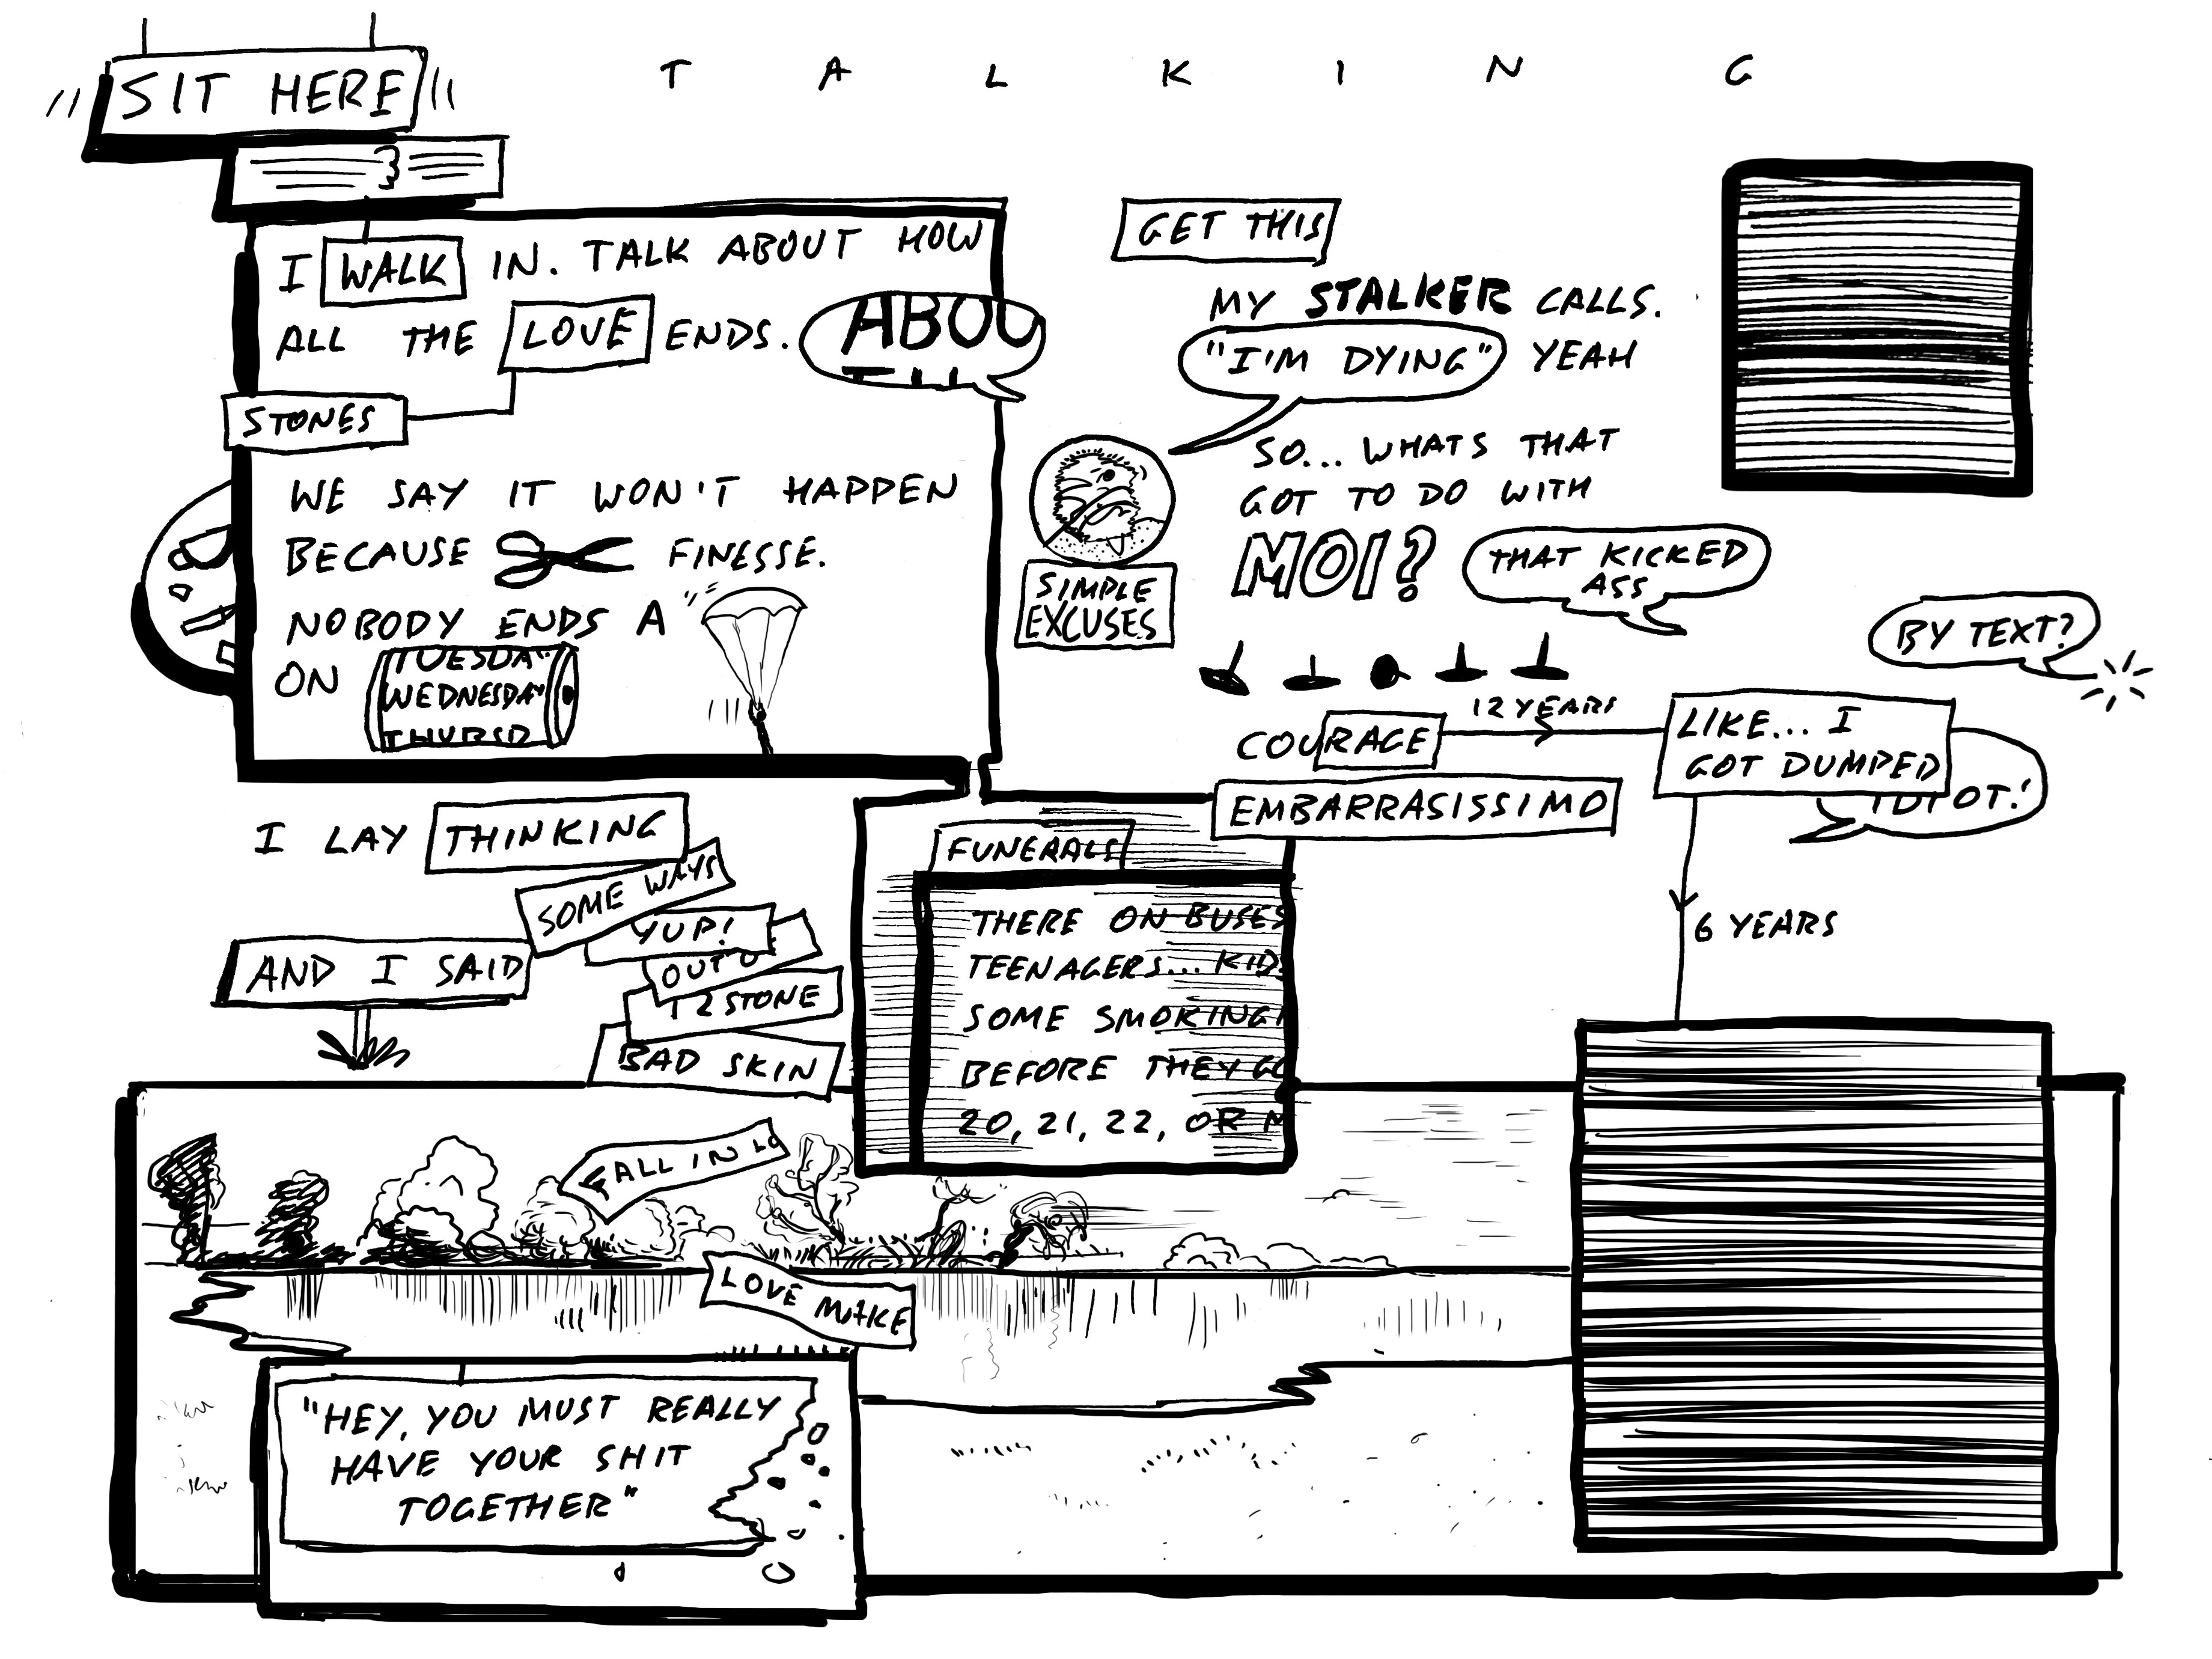 SIT HERE
T A L K I N G
I WALK IN. TALK ABOUT HOW
ALL THE LOVE ENDS.
ABOU
STONES
WE SAY IT WON'T HAPPEN
BECAUSE FINESSE.
NOBODY ENDS A
ON
TUESDAY
WEDNESDAY
THURSD
GET THIS
MY STALKER CALLS.
"I'M DYING" YEAH
SO... WHATS THAT
GOT TO DO WITH
MOI?
THAT KICKED
ASS
SIMPLE
EXCUSES
BY TEXT?
COURAGE
12 YEARS
LIKE... I
GOT DUMPED
IDIOT!
EMBARRASISSIMO
6 YEARS
I LAY THINKING
SOME WAYS
YUP!
OUT
12 STONE
BAD SKIN
AND I SAID
FUNERALS
THERE ON BUSES
TEENAGERS... KIDS
SOME SMOKING
BEFORE THEY GO
20, 21, 22, OR M
FALL IN LO
LOVE MAKE
"HEY, YOU MUST REALLY
HAVE YOUR SHIT
TOGETHER"